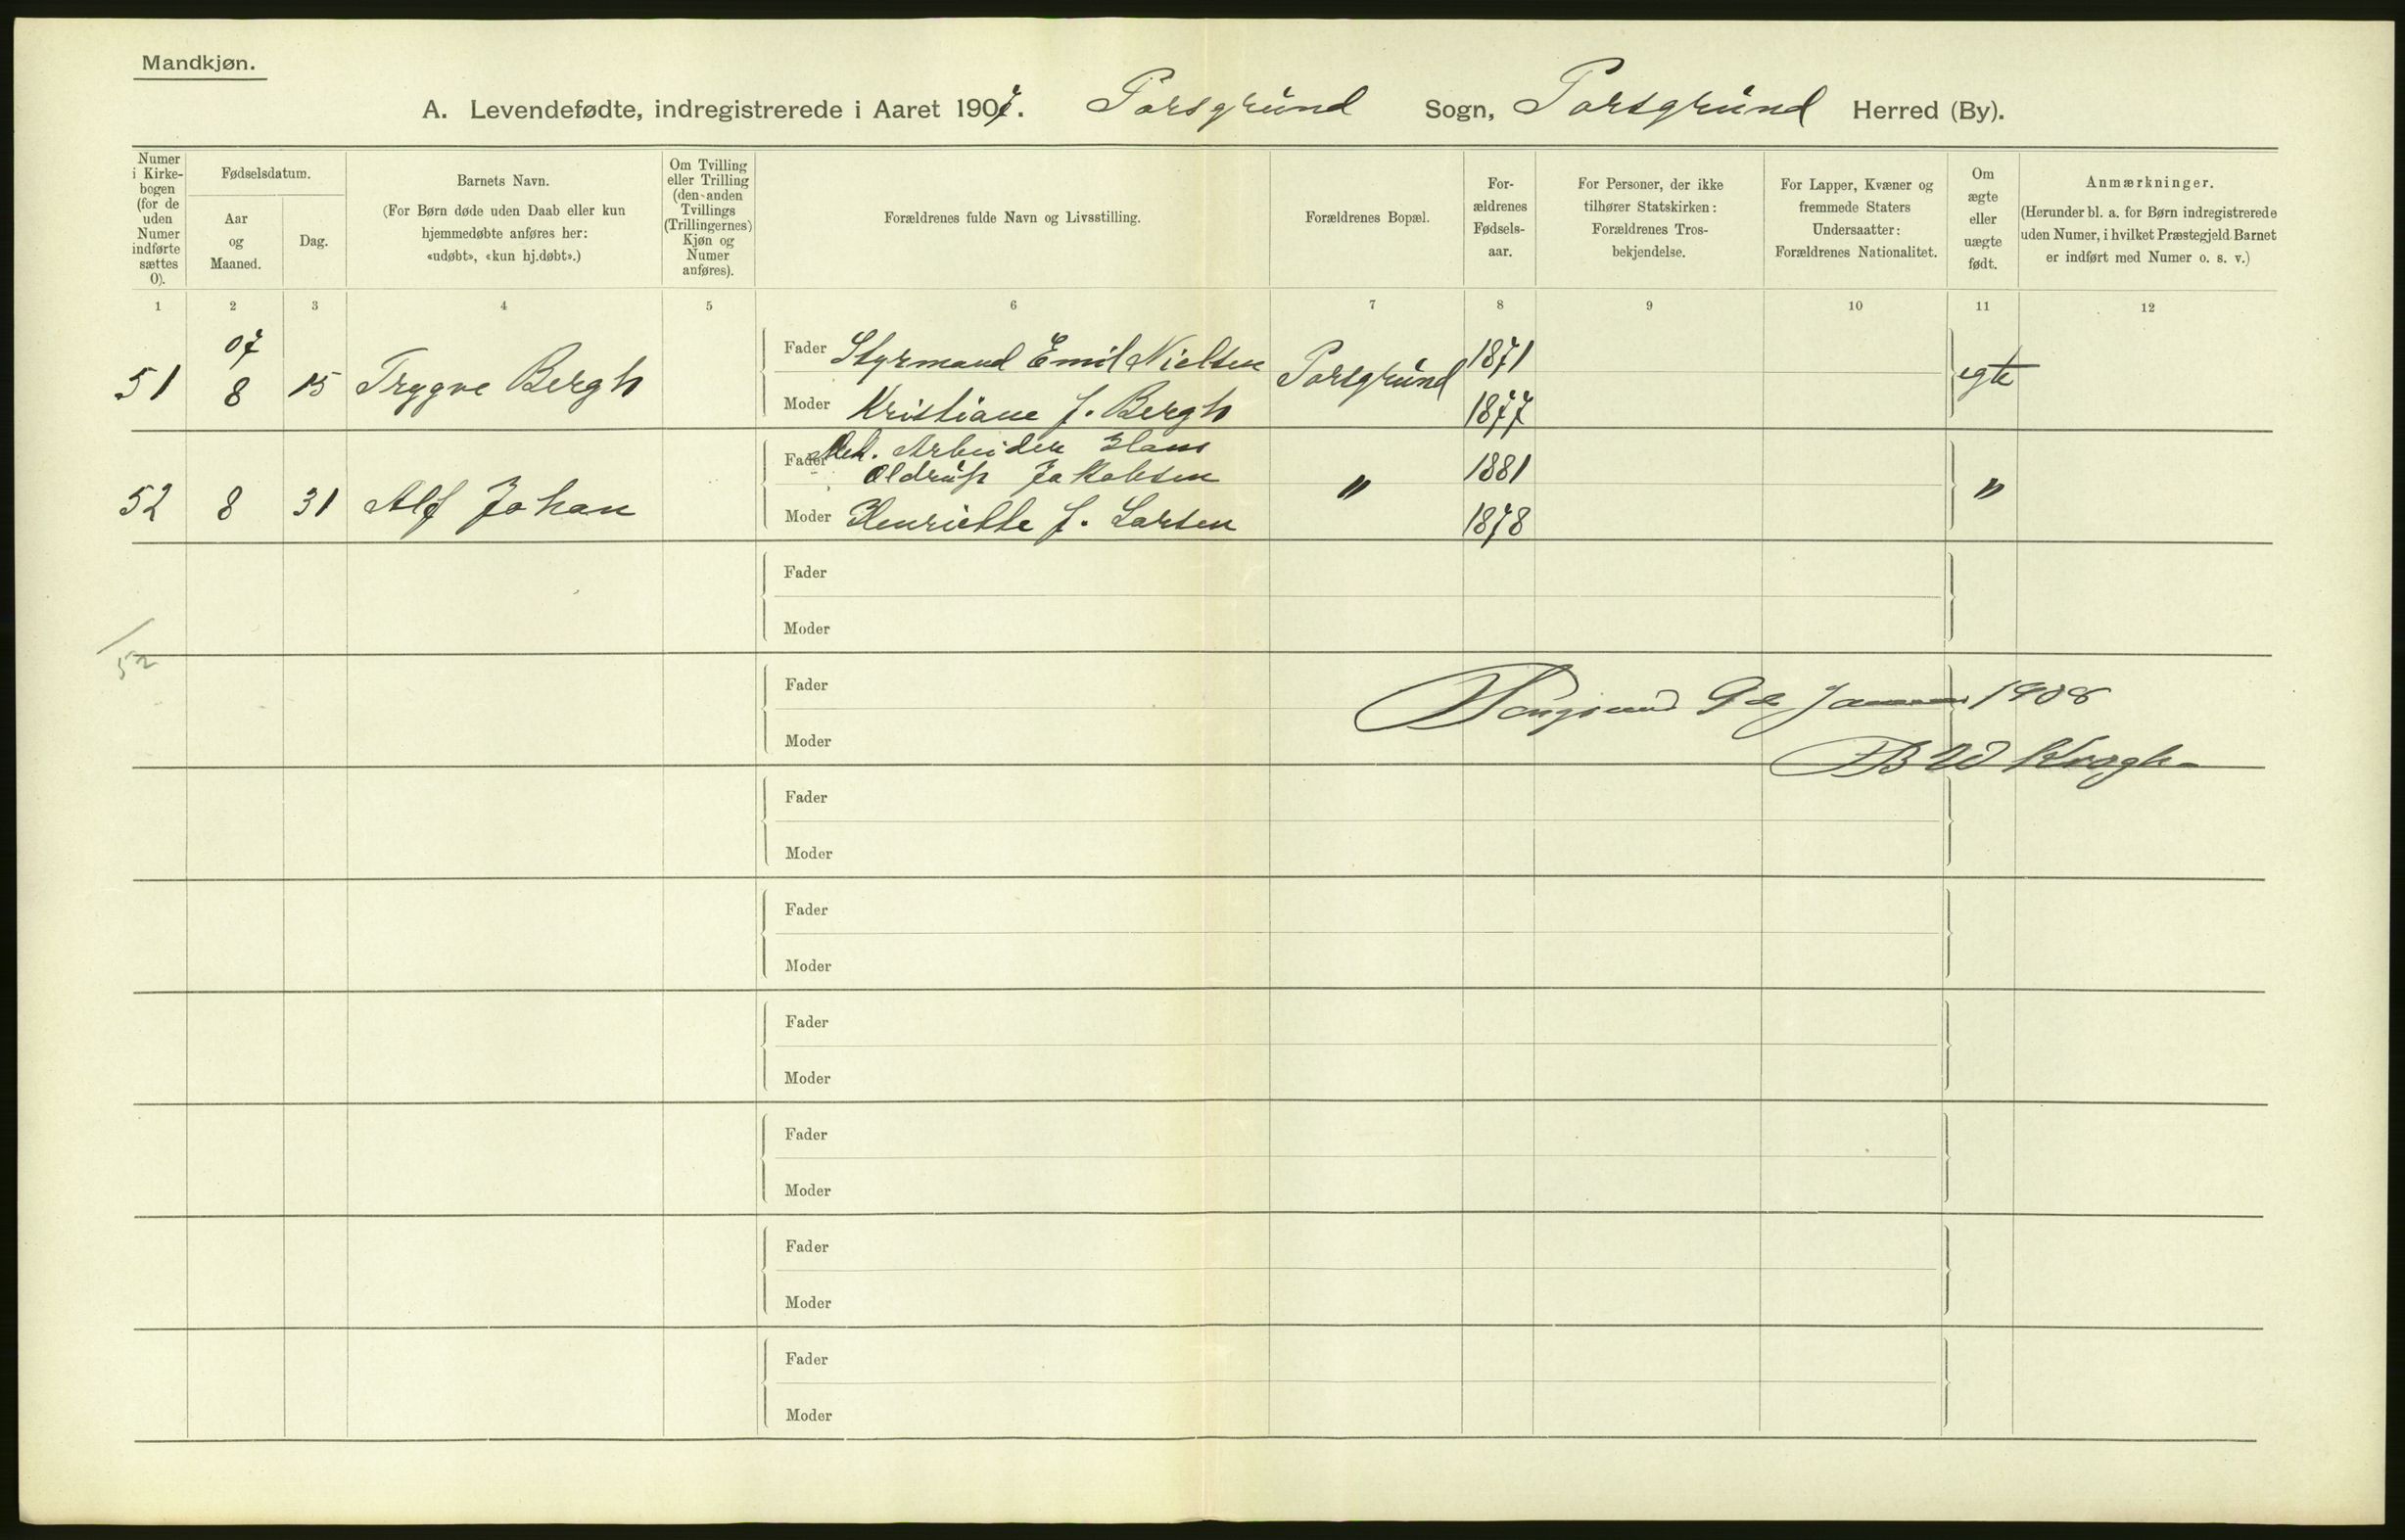 Mandkjøn.
A. Levendefødte, indregistrerede i Aaret 1907. Porsgrund Sogn, Porsgrund Herred (By).
Numer i Kirke-bogen (for de uden Numer indførte sættes 0).
Fødselsdatum.
Aar og Maaned.
Dag.
Barnets Navn.
(For Børn døde uden Daab eller kun
hjemmedøbte anføres her:
«udøbt», «kun hj.døbt».)
Om Tvilling
eller Trilling
(den anden
Tvillings
(Trillingernes)
Kjøn og
Numer
anføres).
Forældrenes fulde Navn og Livsstilling.
Forældrenes Bopæl.
For-
ældrenes
Fødsels-
aar.
For Personer, der ikke
tilhører Statskirken:
Forældrenes Tros-
bekjendelse.
For Lapper, Kvæner og
fremmede Staters
Undersaatter:
Forældrenes Nationalitet.
Om
ægte
eller
uægte
født.
Anmærkninger.
(Herunder bl. a. for Børn indregistrerede
uden Numer, i hvilket Præstegjeld Barnet
er indført med Numer o. s. v.)
1 2 3 4 5 6 7 8 9 10 11 12
07
51 8 15 Trygve Bergh
Fader Styrmand Emil Nielsen Porsgrund 1871 egte
Moder Kristiane f. Bergh 1877
52 8 31 Alf Johan
Fader Mek. Arbeider Hans
Oldrup Jakobsen " 1881 "
Moder Henriette f. Larsen 1878
Fader
Moder
52
Fader
Porsgrund 9de Januar 1908
Moder
Krogh
Fader
Moder
Fader
Moder
Fader
Moder
Fader
Moder
Fader
Moder
Fader
Moder